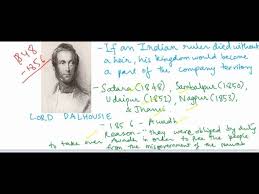 1848
-1856
- If an Indian ruler died without
a heir, his kingdom would become
a part of the company territory
- Satara (1848), Sambalpur (1850),
Udaipur (1851), Nagpur (1853),
& Jhansi
LORD DALHOUSIE
- 1856 - Awadh
Reason - "they were obliged by duty
to take over Awadh in order to free the people
from the misgovernment of the nawab